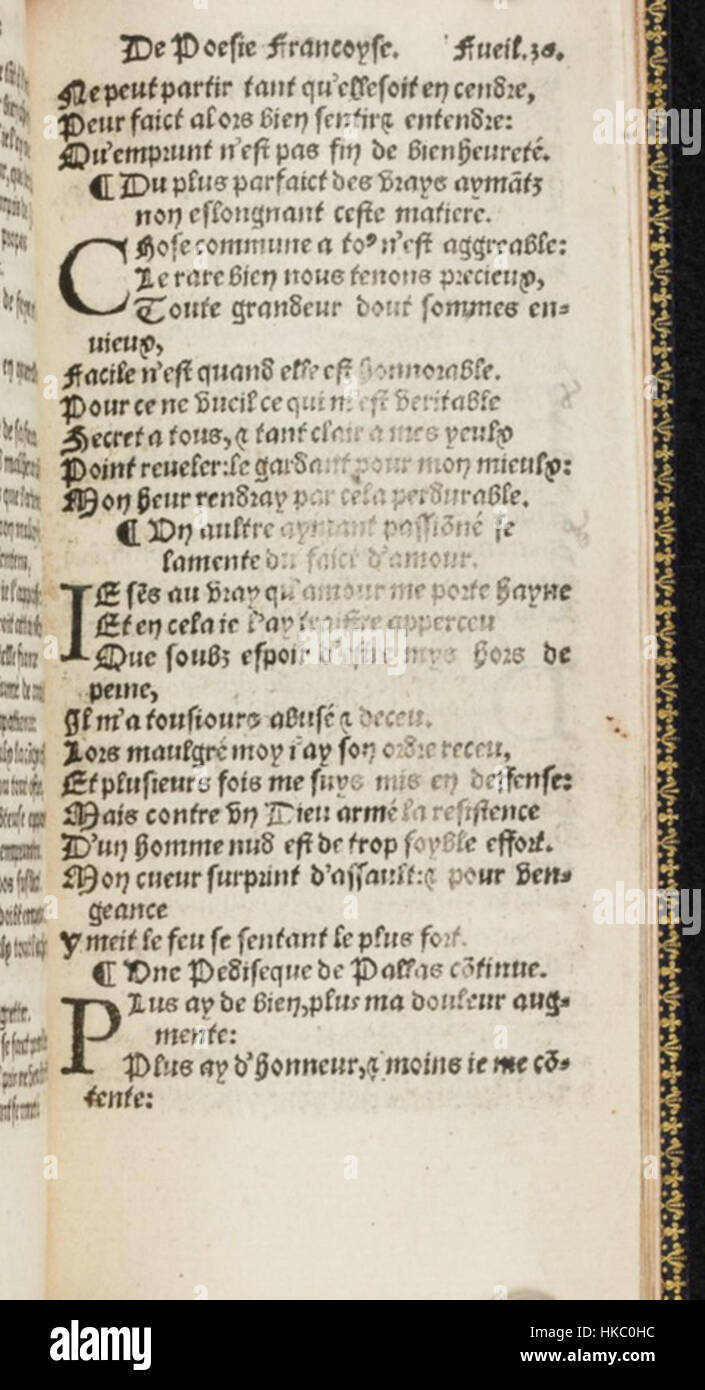 De Poesie Francoyse. Fueil.30.
Ne peut partir tant qu'elle soit en cendre,
Peur faict alors bien sentir⁊ entendre:
Qu'emprunt n'est pas fin de bienheureté.
¶ Du plus parfaict des vrays aymãtz
non eslongnant ceste matiere.
CHose commune a to⁹ n'est aggreable:
Le rare bien nous tenons precieux,
Toute grandeur dont sommes en-
uieux,
Facile n'est quand elle est honnorable.
Pour ce ne vueil ce qui m'est veritable
Secret a tous, ⁊ tant clair a mes yeulx
Point reueler: le gardant pour mon mieulx:
Mon heur rendray par cela perdurable.
¶ Vn aultre aymant passiõné se
lamente du faict d'amour.
IE sẽs au vray qu'amour me porte hayne
Et en cela ie l'ay traistre apperceu
Que soubz espoir d'estre mys hors de
peine,
Il m'a tousiours abusé ⁊ deceu.
Lors maulgré moy i'ay son ordre receu,
Et plusieurs fois me suys mis en deffense:
Mais contre vn Dieu armé la resistence
D'un homme nud est de trop foyble effort.
Mon cueur surprint d'assault:⁊ pour ven-
geance
y meit le feu se sentant le plus fort.
¶ Vne Pediseque de Pallas cõtinue.
PLus ay de bien, plus ma douleur aug-
mente:
Plus ay d'honneur, ⁊ moins ie me cõ-
tente:
alamy
Image ID: HKC0HC
www.alamy.com